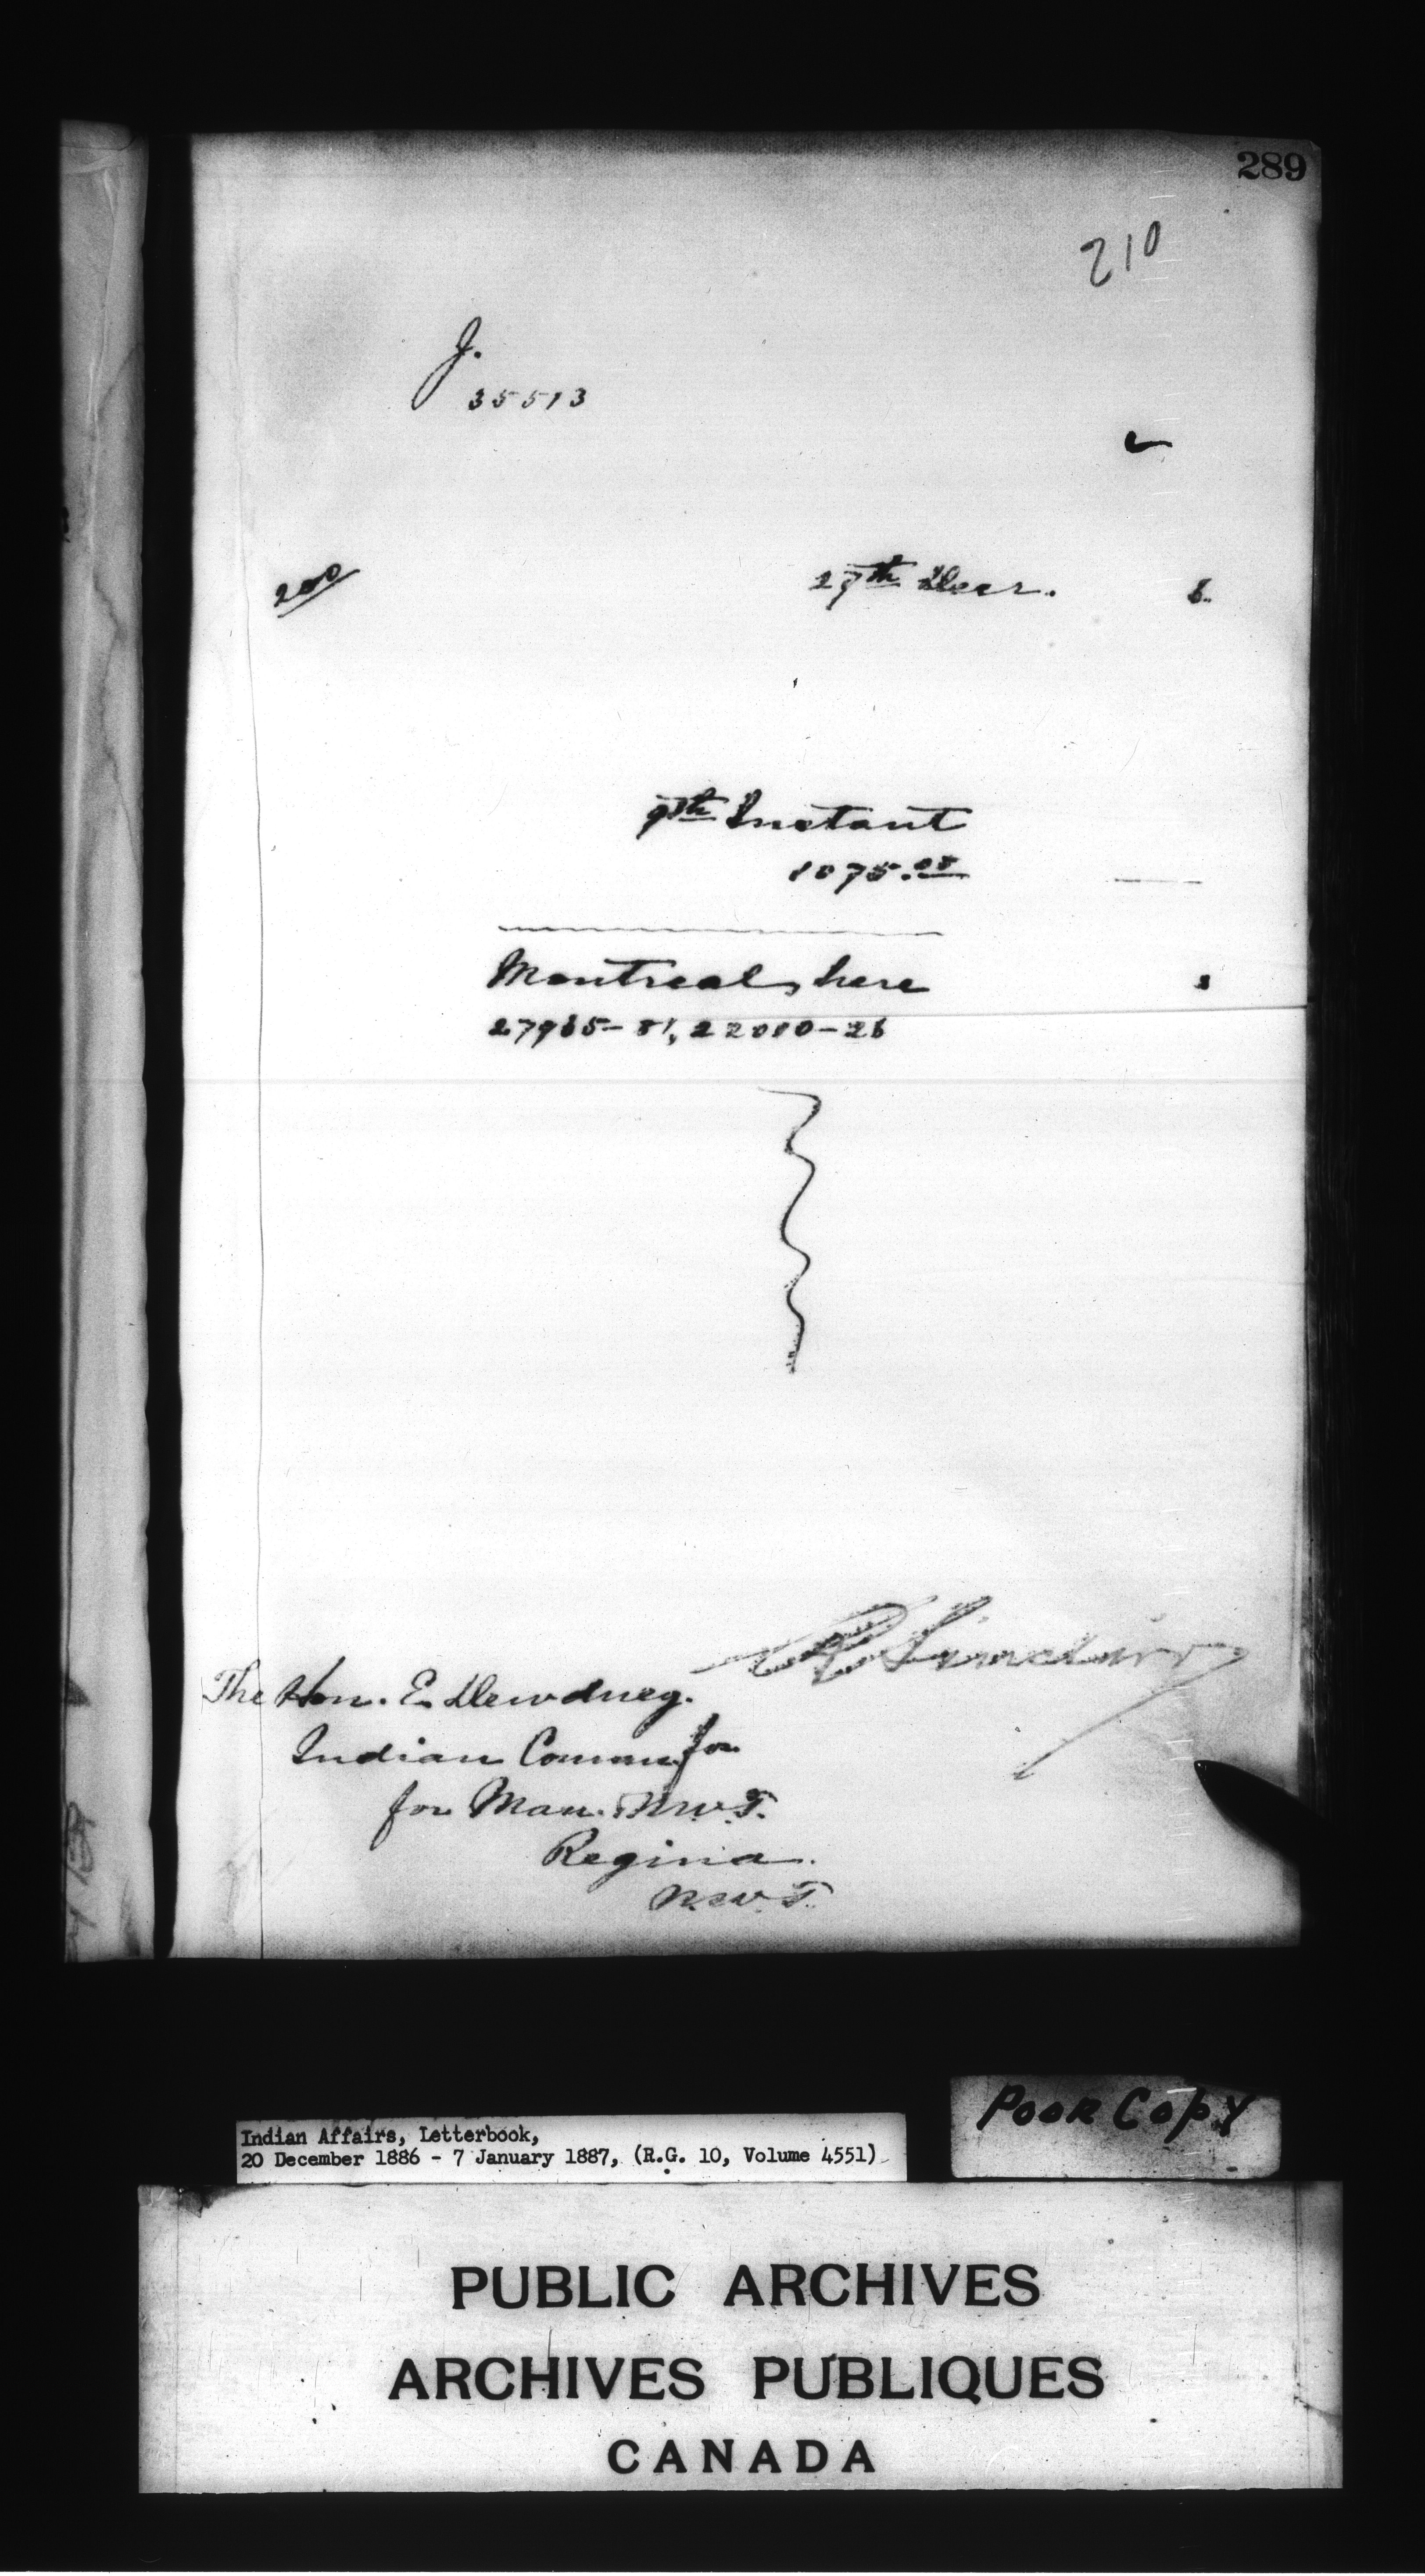 289
210
J.
35513
200
27th Decr. 6.
9th Instant
1075.00
Montreal, here
27965-81, 22080-26
R Sinclair
The Hon. E. Dewdney.
Indian Commr for
for Man. N.W.T.
Regina.
N.W.T.
Poor Copy
Indian Affairs, Letterbook,
20 December 1886 - 7 January 1887, (R.G. 10, Volume 4551)
PUBLIC ARCHIVES
ARCHIVES PUBLIQUES
CANADA